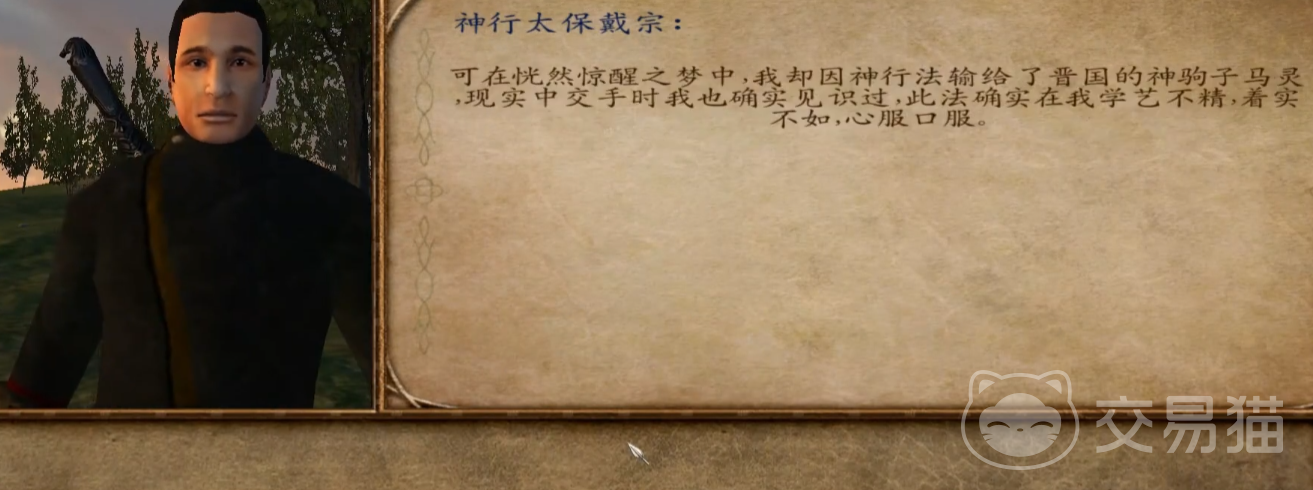 神行太保戴宗：
可在恍然惊醒之梦中，我却因神行法输给了晋国的神驹子马灵
，现实中交手时我也确实见识过，此法确实在我学艺不精，着实
不如，心服口服。
交易猫